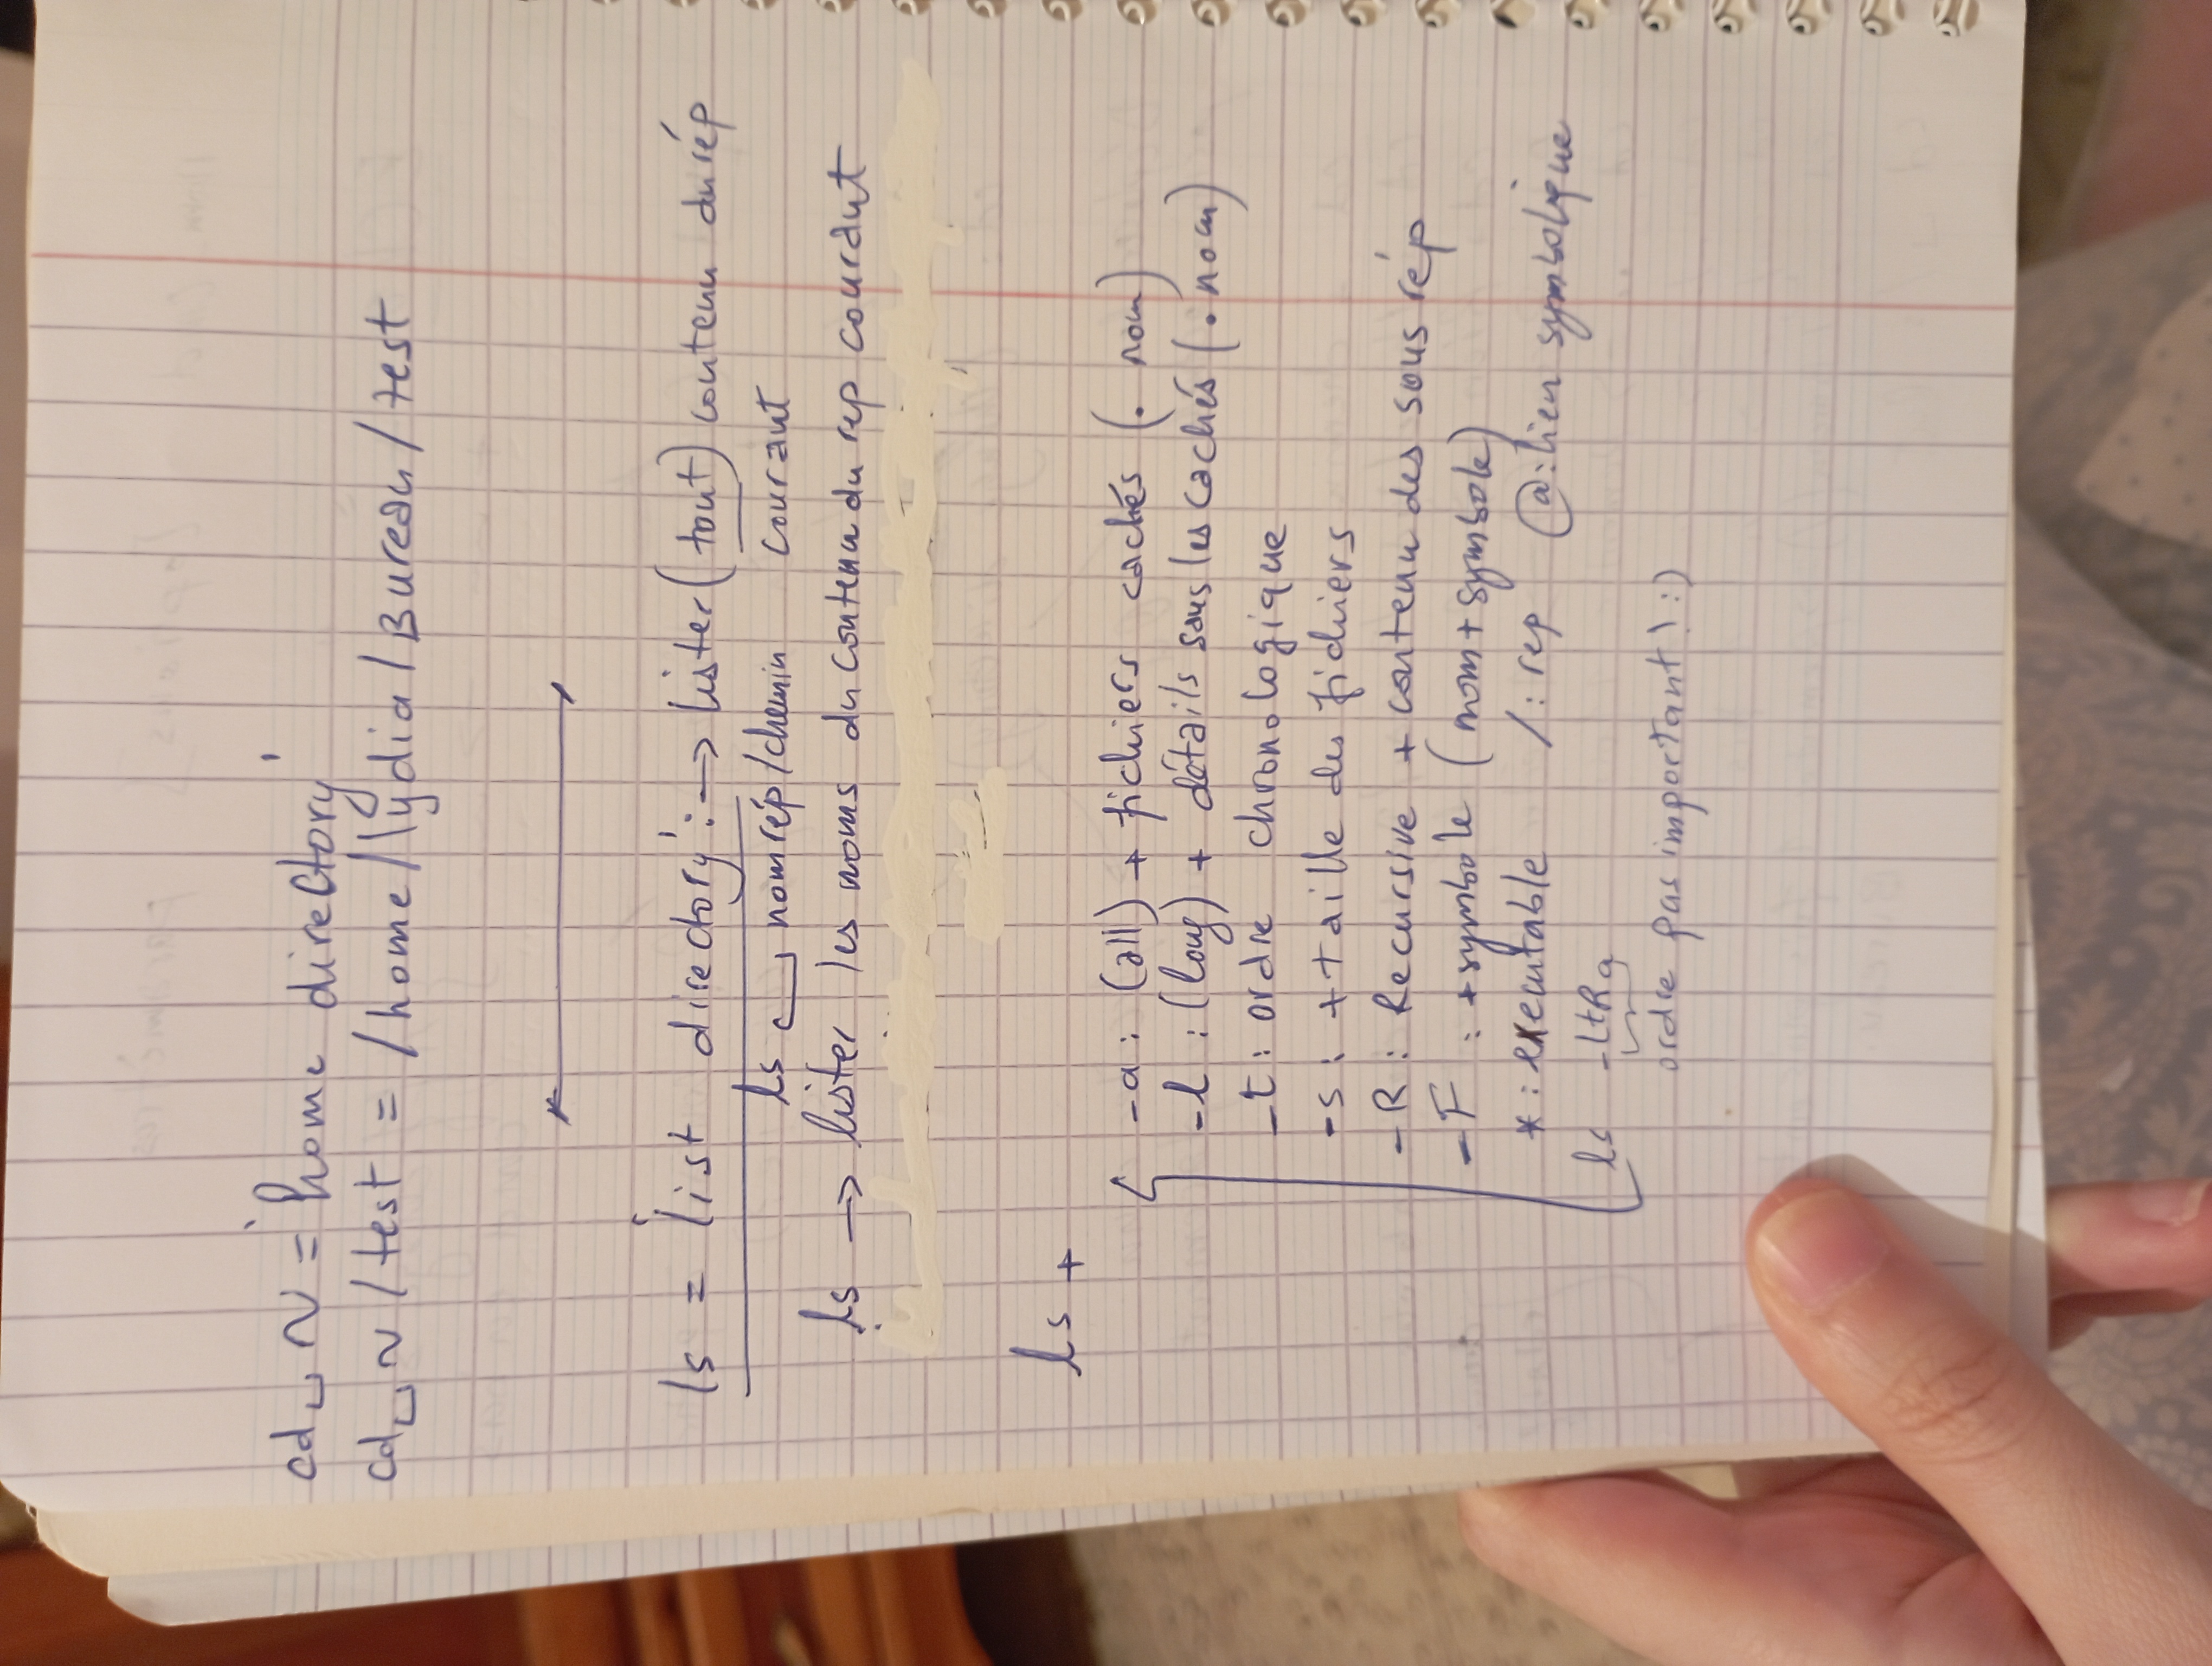 cd␣~ = 'home directory'
cd␣~/test = /home/lydia/Bureau/test
ls = 'list directory': → lister (tout) contenu du rép
ls ␣ nomrép/chemin courant
ls → lister les noms du contenu du rep courant
ls +
-a : (all) + fichiers cachés (. nom)
-l : (long) + détails sans les cachés (. nom)
-t : ordre chronologique
-s : + taille des fichiers
-R : Recursive + contenu des sous rép
-F : + symbole (nom + symbole)
* : executable / : rep @ : lien symbolique
ls -ltRa
ordre pas important ! :)